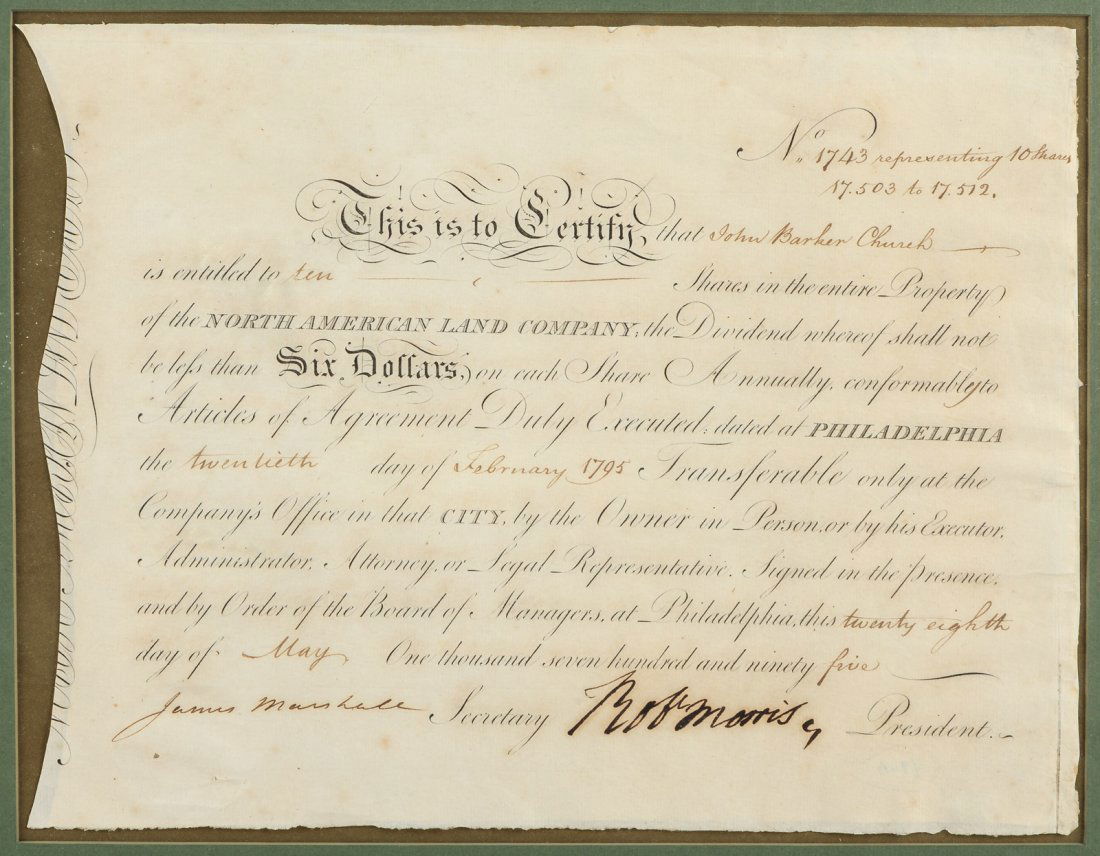 No. 1743 representing 10 Shares
17.503 to 17.512.
This is to Certify, that John Barker Church
is entitled to ten Shares in the entire Property
of the NORTH AMERICAN LAND COMPANY, the Dividend whereof shall not
be less than Six Dollars, on each Share Annually, conformably to
Articles of Agreement Duly Executed; dated at PHILADELPHIA
the twentieth day of February 1795 Transferable only at the
Company's Office in that CITY, by the Owner in Person, or by his Executor,
Administrator, Attorney, or Legal Representative. Signed in the presence,
and by Order of the Board of Managers, at Philadelphia, this twenty eighth
day of May One thousand seven hundred and ninety five
James Marshall Secretary Robt Morris President.